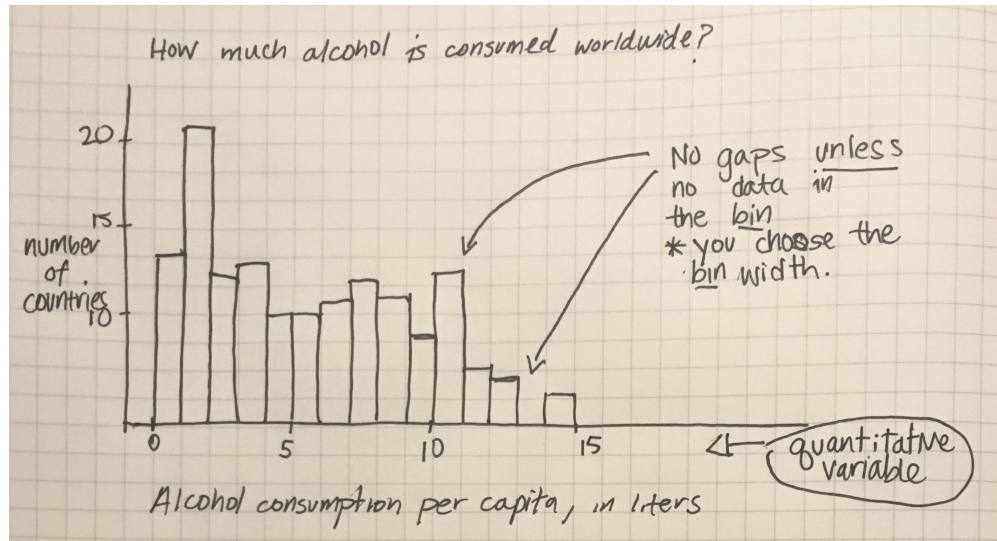 How much alcohol is consumed worldwide?
20
15
number
of
countries
10
No gaps unless
no data in
the bin
* you choose the
bin width.
0 5 10 15
quantitative
variable
Alcohol consumption per capita, in liters